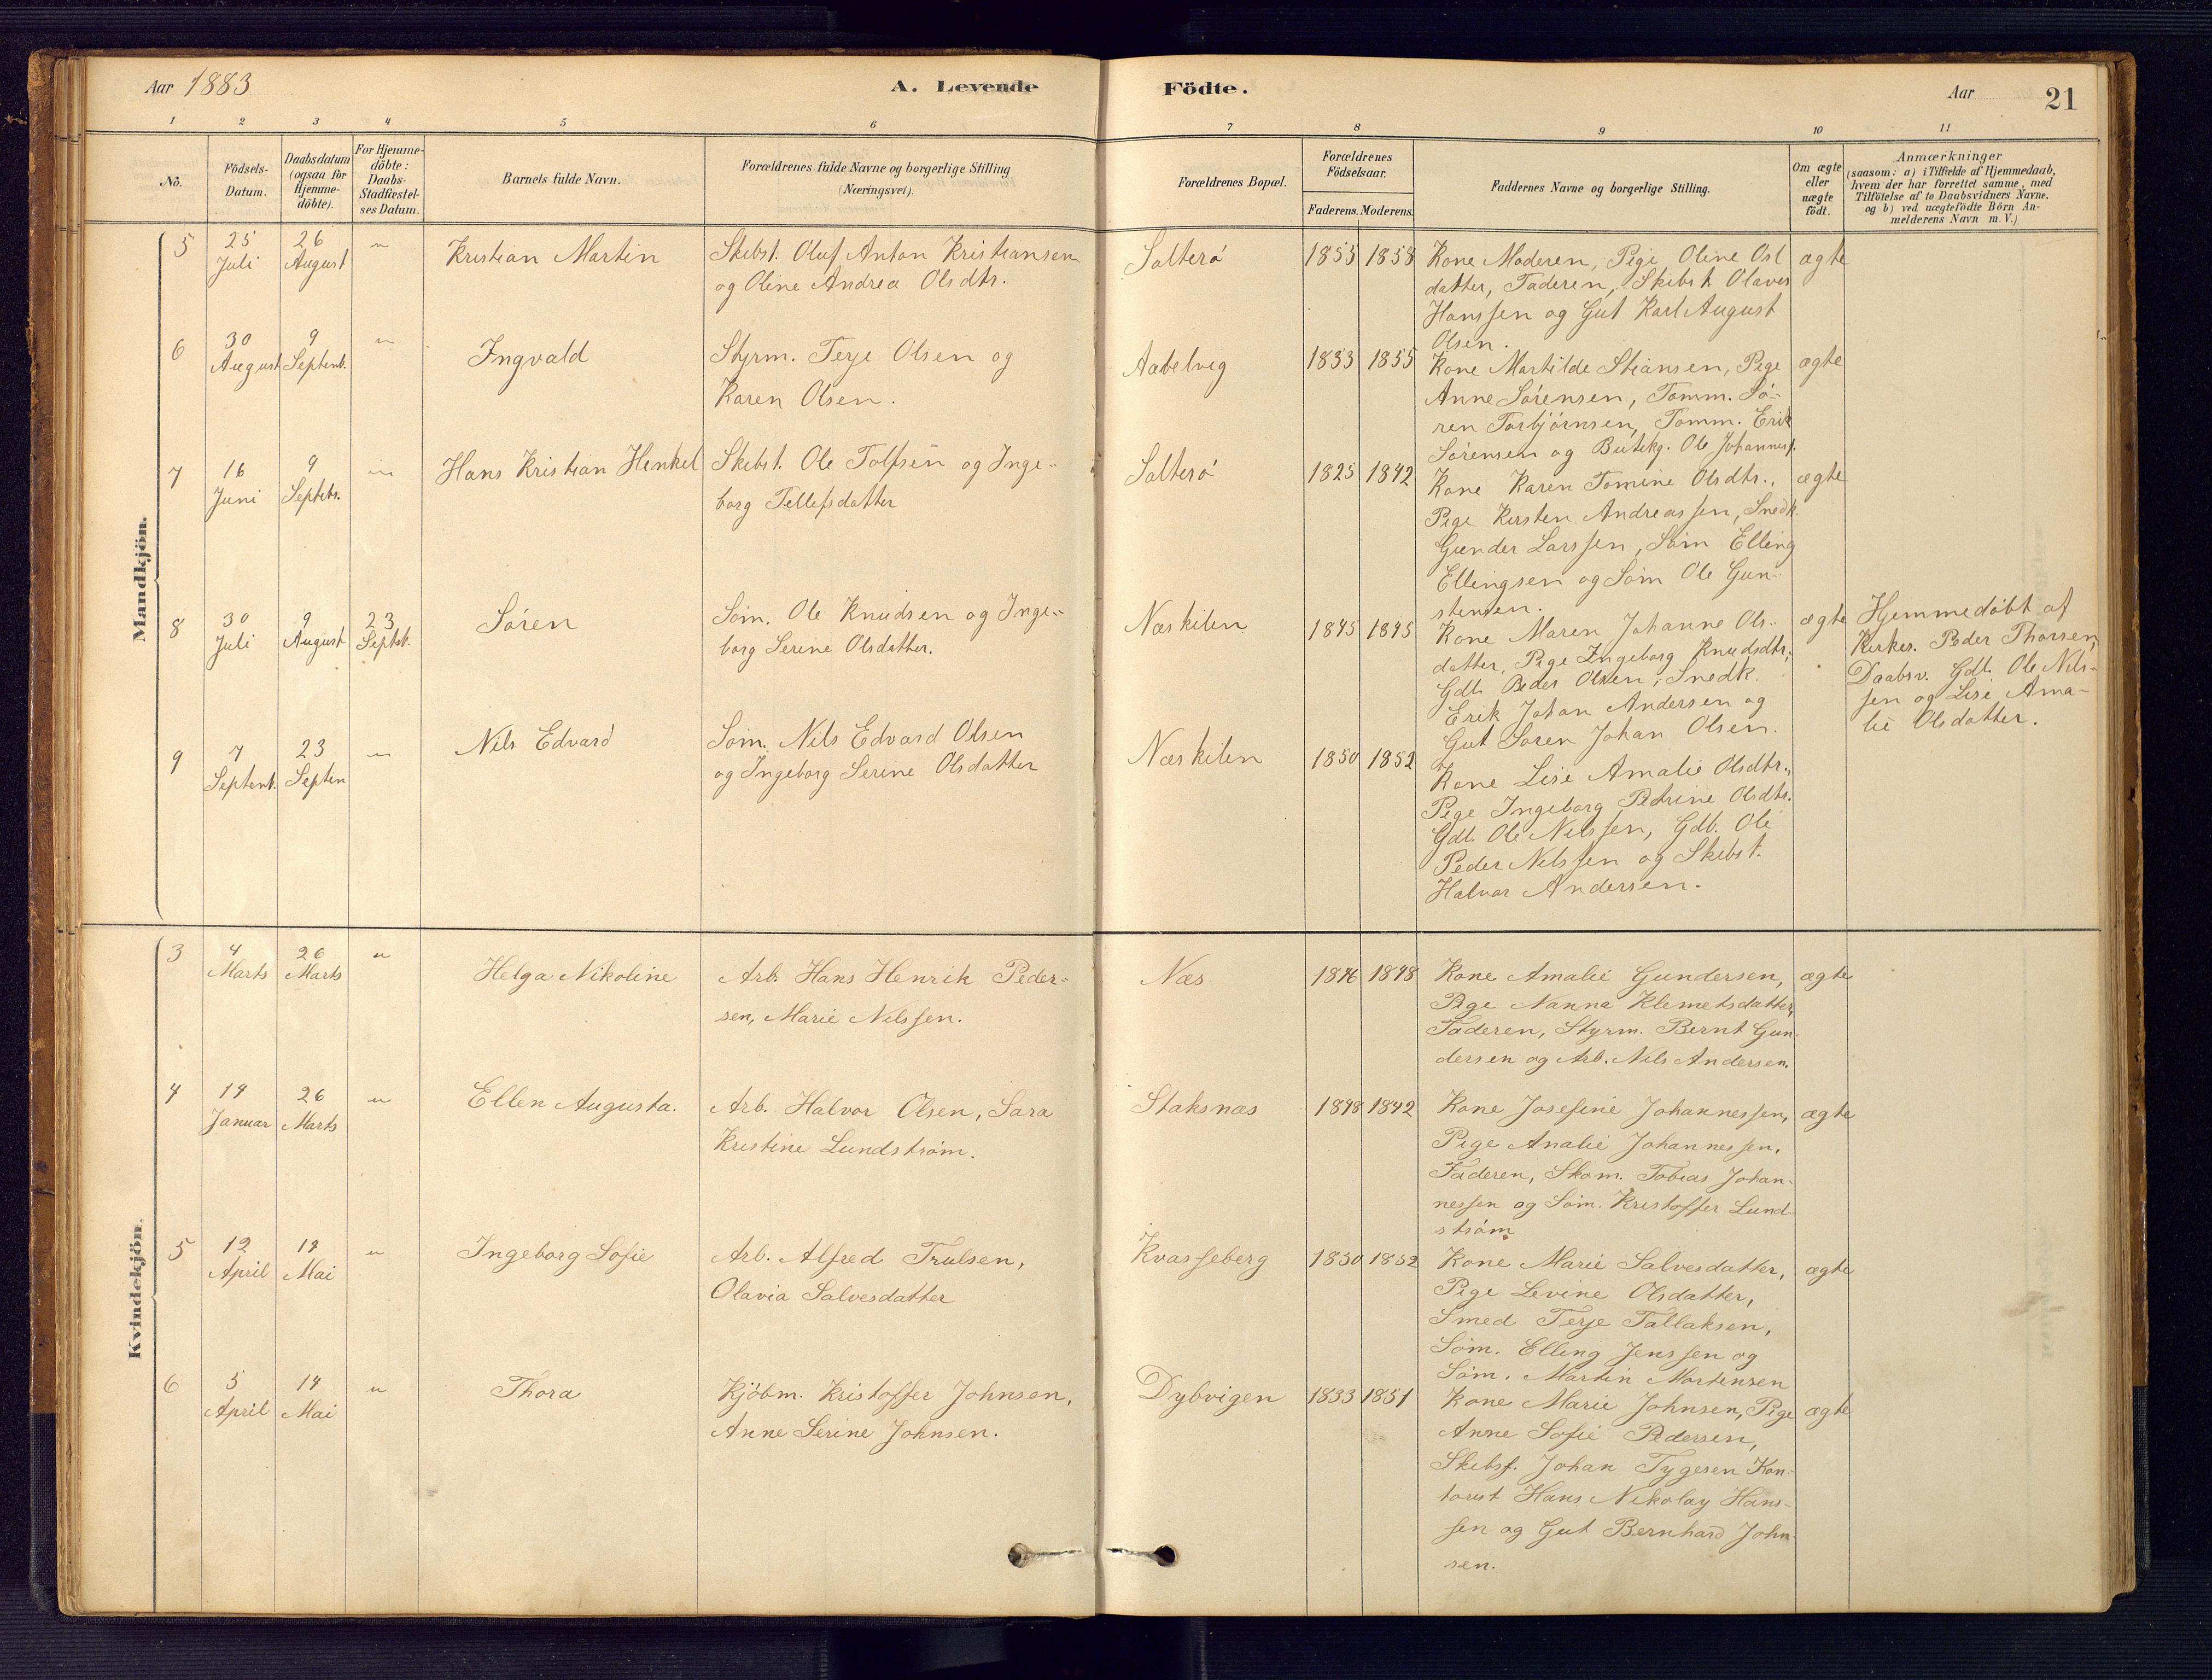 Aar 1883
A. Levende Födte.
Aar 21
1 2 3 4 5 6 7 8 9 10 11
No.
Födsels-Datum.
Daabsdatum (ogsaa for Hjemme-döbte).
For Hjemme-döbte: Daabs-Stadfæstel-ses Datum.
Barnets fulde Navn.
Forældrenes fulde Navne og borgerlige Stilling (Næringsvei).
Forældrenes Bopæl.
Forældrenes Födselsaar.
Faderens. Moderens.
Faddernes Navne og borgerlige Stilling.
Om ægte eller uægte födt.
Anmærkninger
(saasom: a) i Tilfælde af Hjemmedaab, hvem der har forrettet samme, med Tilföielse af to Daabsvidners Navne. og b) ved uægtefödte Börn An-melderens Navn m. V.)
Mandkjön.
5
25 Juli
26 August
"
Kristian Martin
Skibst. Oluf Anton Kristiansen
og Oline Andrea Olsdtr.
Salterö
1855 1858
Kone Moderen, Pige Oline Ols
datter, Faderen, Skibst. Olaves
Hanssen og Gut Karl August
Olsen.
ægte
6
30 August
9 Septemb.
"
Ingvald
Styrm. Terje Olsen og
Karen Olsen.
Aabelvig
1853 1855
Kone Mathilde Stiansen, Pige
Anne Sörensen, Tömm. Sö-
ren Torbjörnsen, Tömm. Erik
Sörensen og Butikg. Ole Johannes.
ægte
7
16 Juni
9 Septebr.
"
Hans Kristian Henkel
Skibst. Ole Tolfsen og Inge-
borg Tellefsdatter
Salterö
1825 1842
Kone Karen Tomine Olsdtr.,
Pige Kirsten Andreassen, Snedk.
Gunder Larssen, Söm Elling
Ellingsen og Söm Ole Gun-
stensen.
ægte
8
30 Juli
9 August
23 Septbr.
Sören
Söm. Ole Knudsen og Inge-
borg Serine Olsdatter.
Næskilen
1845 1845
Kone Maren Johanne Ols-
datter, Pige Ingeborg Knudsdtr,
Gdb. Peder Olsen, Snedk.
Erik Johan Andersen og
Gut Sören Johan Olsen.
ægte
Hjemmedöbt af
Kirkes. Peder Thorsen,
Daabsv. Gdb. Ole Nils-
sen og Lise Ama-
lie Olsdatter.
9
7 Septemb.
23 Septem
"
Nils Edvard
Söm. Nils Edvard Olsen
og Ingeborg Serine Olsdatter
Næskilen
1850 1852
Kone Lise Amalie Olsdtr.,
Pige Ingeborg Petrine Olsdtr.
Gdb. Ole Nilssen, Gdb. Ole
Peder Nilssen og Skibst.
Halvar Andersen.
Kvindekjön.
3
4 Marts
26 Marts
"
Helga Nikoline
Arb. Hans Henrik Peder-
sen, Marie Nilssen.
Næs
1846 1848
Kone Amalie Gundersen,
Pige Nanna Klemetsdatter,
Faderen, Styrm. Bernt Gun-
dersen og Arb. Nils Andersen.
ægte
4
14 Januar
26 Marts
"
Ellen Augusta.
Arb. Halvor Olsen, Sara
Kristine Lundström.
Staksnæs
1848 1842
Kone Josefine Johannessen,
Pige Analie Johannessen,
Faderen, Skom. Tobias Johan-
nessen og Söm. Kristoffer Lund-
ström
ægte
5
12 April
14 Mai
"
Ingeborg Sofie
Arb. Alfred Trulsen,
Olavia Salvesdatter
Kvasseberg
1850 1852
Kone Marie Salvesdatter,
Pige Levine Olsdatter,
Smed Terje Tallaksen,
Söm. Elling Jenssen og
Söm. Martin Mortensen
ægte
6
5 April
14 Mai
"
Thora
Kjöbm. Kristoffer Johnsen,
Anne Serine Johnsen.
Dybvigen
1833 1851
Kone Marie Johnsen, Pige
Anne Sofie Pedersen,
Skibsf. Johan Tygesen Kon-
torist Hans Nikolay Hans-
sen og Gut Bernhard John-
sen.
ægte